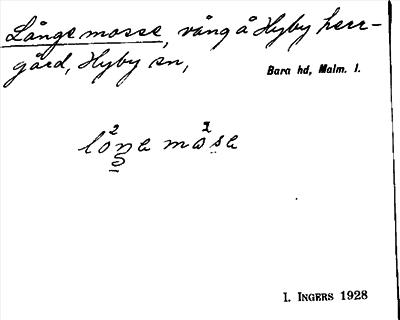 Långe mosse, vång å Hyby herr-
gård, Hyby sn,
Bara hd, Malm. l.
I. INGERS 1928